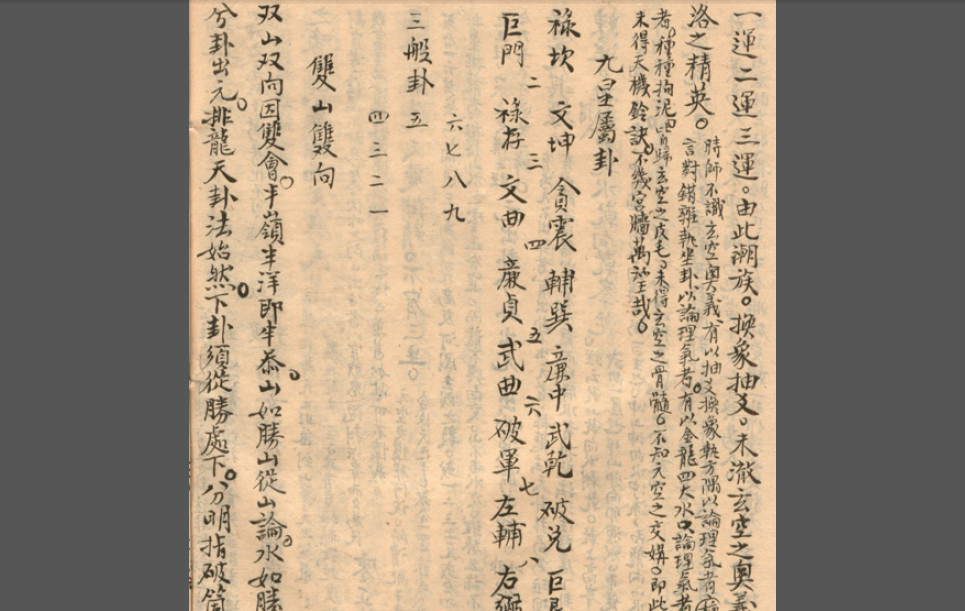 一運二運三運。由此溯族。換象抽爻。未澈玄空之奧義
洛之精英。
時師不識玄空奧義有以抽爻換象執方隅以論理氣者
言對錯雜執坐卦以論理氣者。有以金龍四大水口論理氣者
者種種拘泥皆歸玄空之皮毛未得玄空之骨髓。不知元空之交媾即此
未得天機鈴訣。不幾宮牆萬里哉。
九星屬卦
祿坎 文坤 貪震 輔巽 廉中 武乾 破兌 巨
巨門 二 祿存 三 文曲 四 廉貞 五 武曲 六 破軍 七 左輔 八 右弼
六七八九
三般卦 五
四三二一
雙山雙向
双山双向因雙會。半嶺半洋即半恭。山如勝山從山論。水如勝
兮卦出元。排龍天卦法始然。下卦須從勝處下。分明指破箇